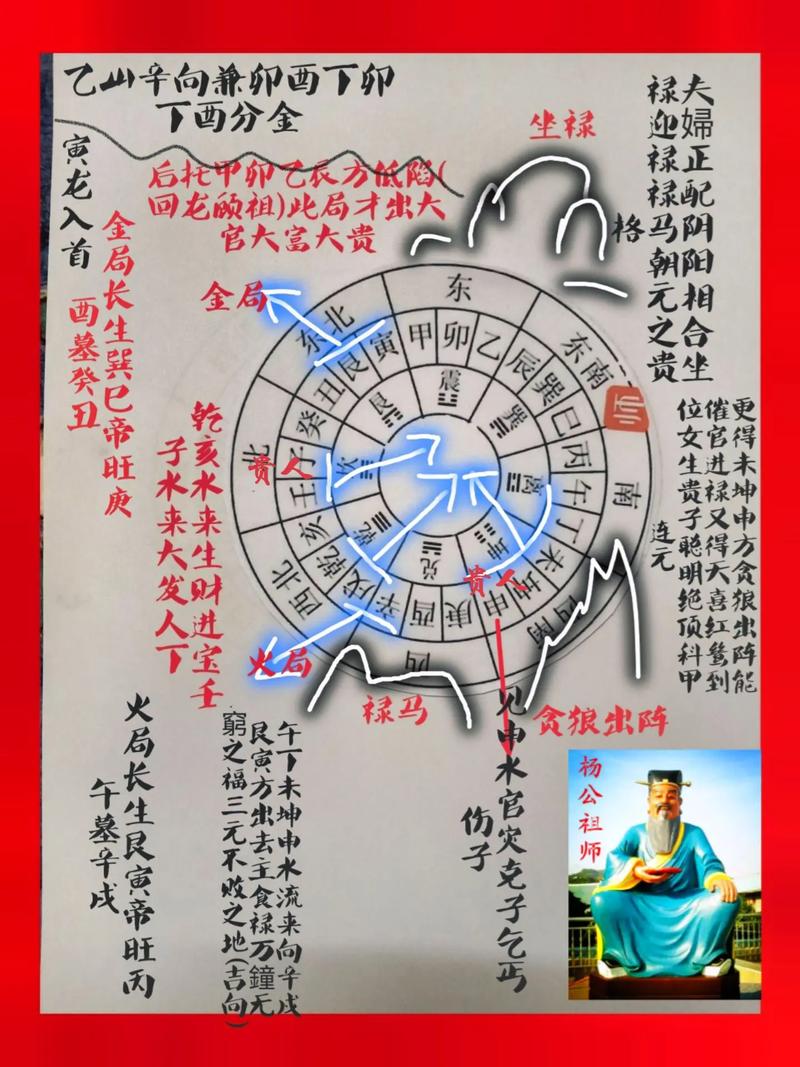 乙山辛向兼卯酉丁卯
丁酉分金
寅龙入首
后托甲卯乙辰方低陷(
回龙顾祖)此局才出大
官大富大贵
坐禄
夫婦正配阴阳相合坐
禄迎禄禄马朝元之贵
格
金局长生巽巳帝旺庚
酉墓癸丑
金局
更得未坤申方贪狼出阵能
催官进禄又得天喜红鸾到
位女生贵子聪明绝顶科甲
连元
乾亥水来生财进宝壬
子水来大发人丁
东
东南
南
西南
西
西北
北
东北
甲
卯
乙
辰
巽
巳
丙
午
丁
未
坤
申
庚
酉
辛
戌
乾
亥
壬
子
癸
丑
艮
寅
震
巽
离
坤
兑
乾
坎
艮
师
贵人
贵人
火局
禄马
贪狼出阵
见申水官灾克子乞丐
伤子
午丁未坤申水流来向辛戌
艮寅方出去主食禄万鐘无
窮之福三元不败之地(吉向)
火局长生艮寅帝旺丙
午墓辛戌
杨公祖师